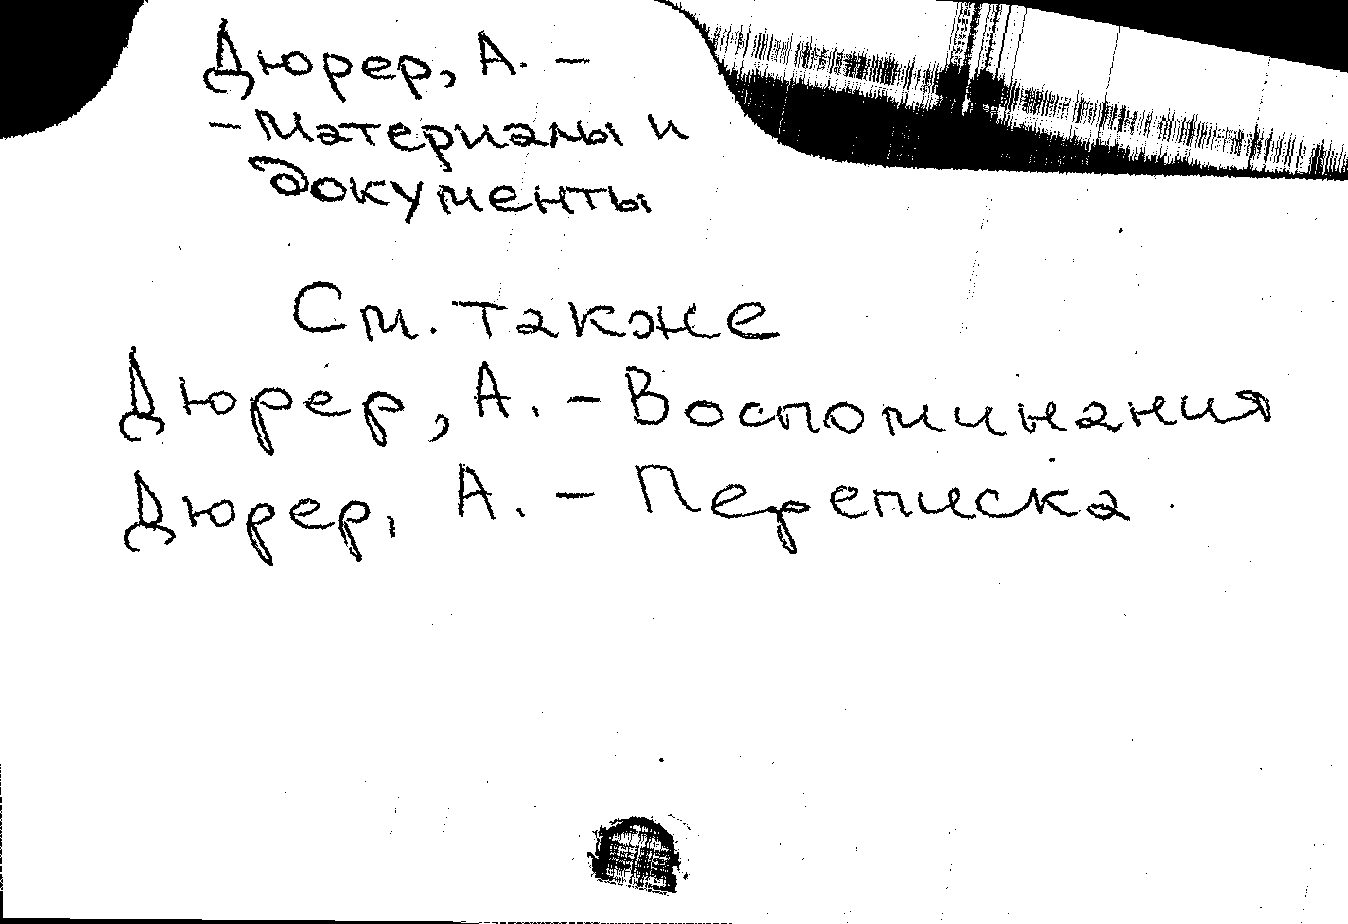 Дюрер, А. –
– Материалы и
документы
См. также
Дюрер, А. – Воспоминания
Дюрер, А. – Переписка.